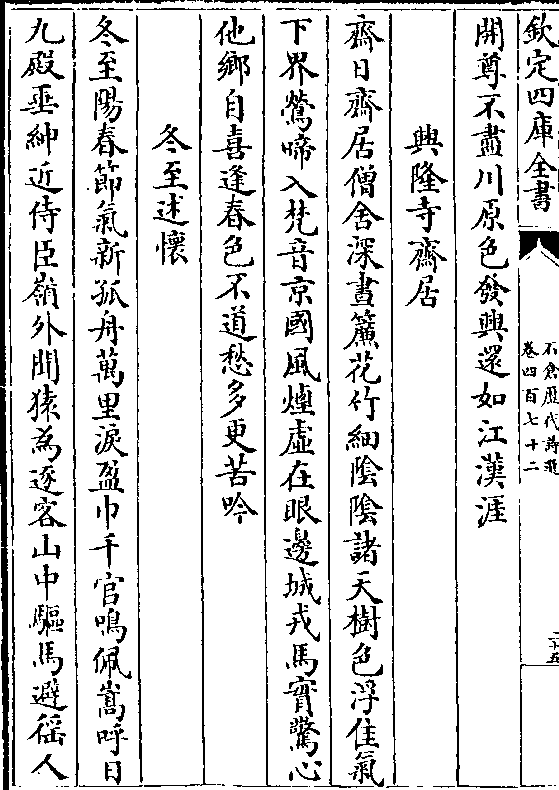 欽定四庫全書
石倉歷代詩選
卷四百七十二
二十五
開尊不盡川原色發興還如江漢涯
興隆寺齋居
齋日齋居僧舍深晝簾花竹細陰陰諸天樹色浮佳氣
下界鶯啼入梵音京國風煙虛在眼邊城戎馬實驚心
他鄉自喜逢春色不道愁多更苦吟
冬至述懷
冬至陽春節氣新孤舟萬里淚盈巾千官鳴佩嵩呼日
九殿垂紳近侍臣嶺外聞猿為逐客山中驅馬避徭人